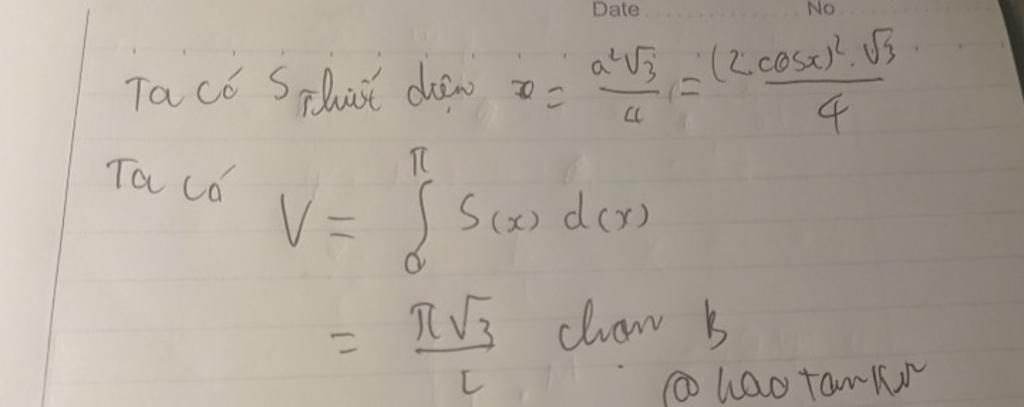 Date No
Ta có S thiết diện x = a²√3/4 = (2.cosx)².√3/4
Ta có
V = ∫₀^π S(x) d(x)
= π√3/2 chọn B
@haotanker